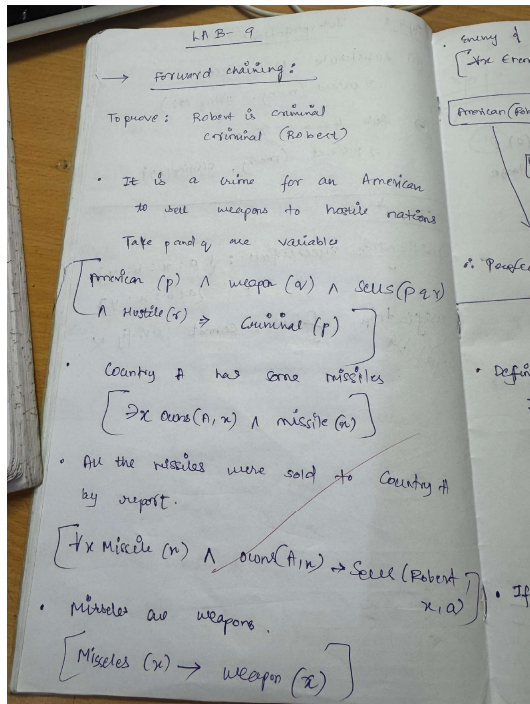 LAB-9
→ Forward chaining:
To prove: Robert is criminal
criminal (Robert)
• It is a crime for an American
to sell weapons to hostile nations
Take p and q are variables
[American (p) ∧ weapon (q) ∧ sells (p q r)
∧ Hostile (r) ⇒ Criminal (p)]
• Country A has some missiles
[∃x owns (A, x) ∧ missile (x)]
• All the missiles were sold to Country A
by report.
[∀x Missile (x) ∧ owns (A, x) → Sell (Robert,
x, a)]
• Missiles are weapons.
[Misseles (x) → weapon (x)]
• Enemy
[∀x Enem
American (Rob
∴ Proved
• Defin
• If